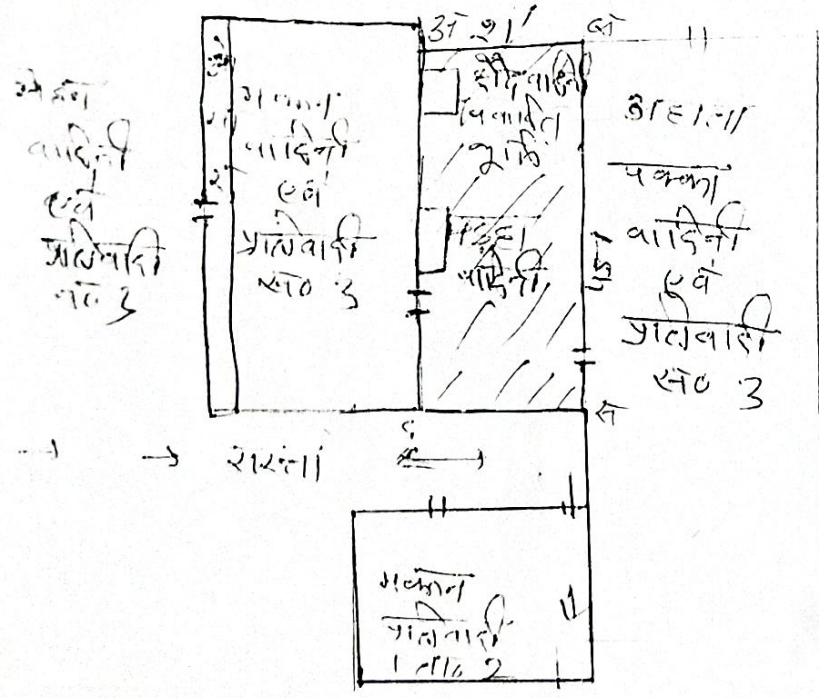 अ
ब
मकान
वादिनी
एवं
प्रतिवादी
सं० 3
वादिनी
एवं
प्रतिवादी
सं० 3
हौद वादिनी
विवादित
भूमि
वादिनी
अहाता
पक्का
वादिनी
एवं
प्रतिवादी
सं० 3
स
द
रास्ता
मकान
प्रतिवादी
1 ता० 2